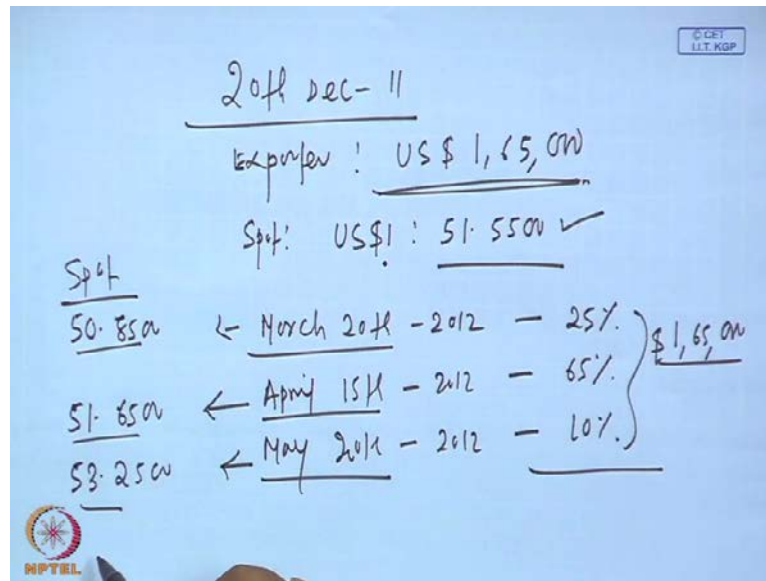 © CET
I.I.T. KGP
20th Dec- 11
Exporter : US $ 1,65,000
Spot: US$1 : 51.5500 ✓
Spot
50.8500 ← March 20th - 2012 - 25%.
$ 1,65,000
51.6500 ← April 15th - 2012 - 65%.
53.2500 ← May 20th - 2012 - 10%.
NPTEL